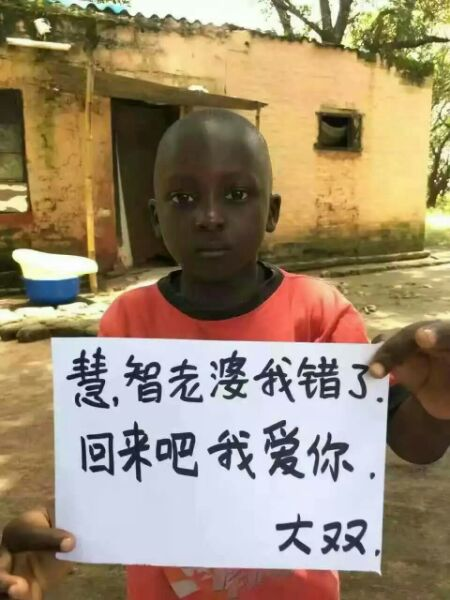 慧,智老婆我错了.
回来吧我爱你.
大双.